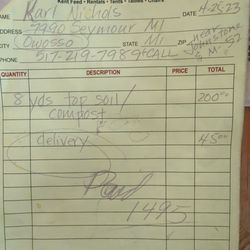 Feed Store • Rentals • Tents • Tables • Chairs
NAME Karl Nichols DATE 4-25-23
ADDRESS 7990 Seymour Rd
CITY Owosso STATE Mi ZIP
PHONE 517-219-7989 CALL
QUANTITY DESCRIPTION PRICE TOTAL
8 yds top soil/ 200.00
compost
delivery 45.00
Paid
1495